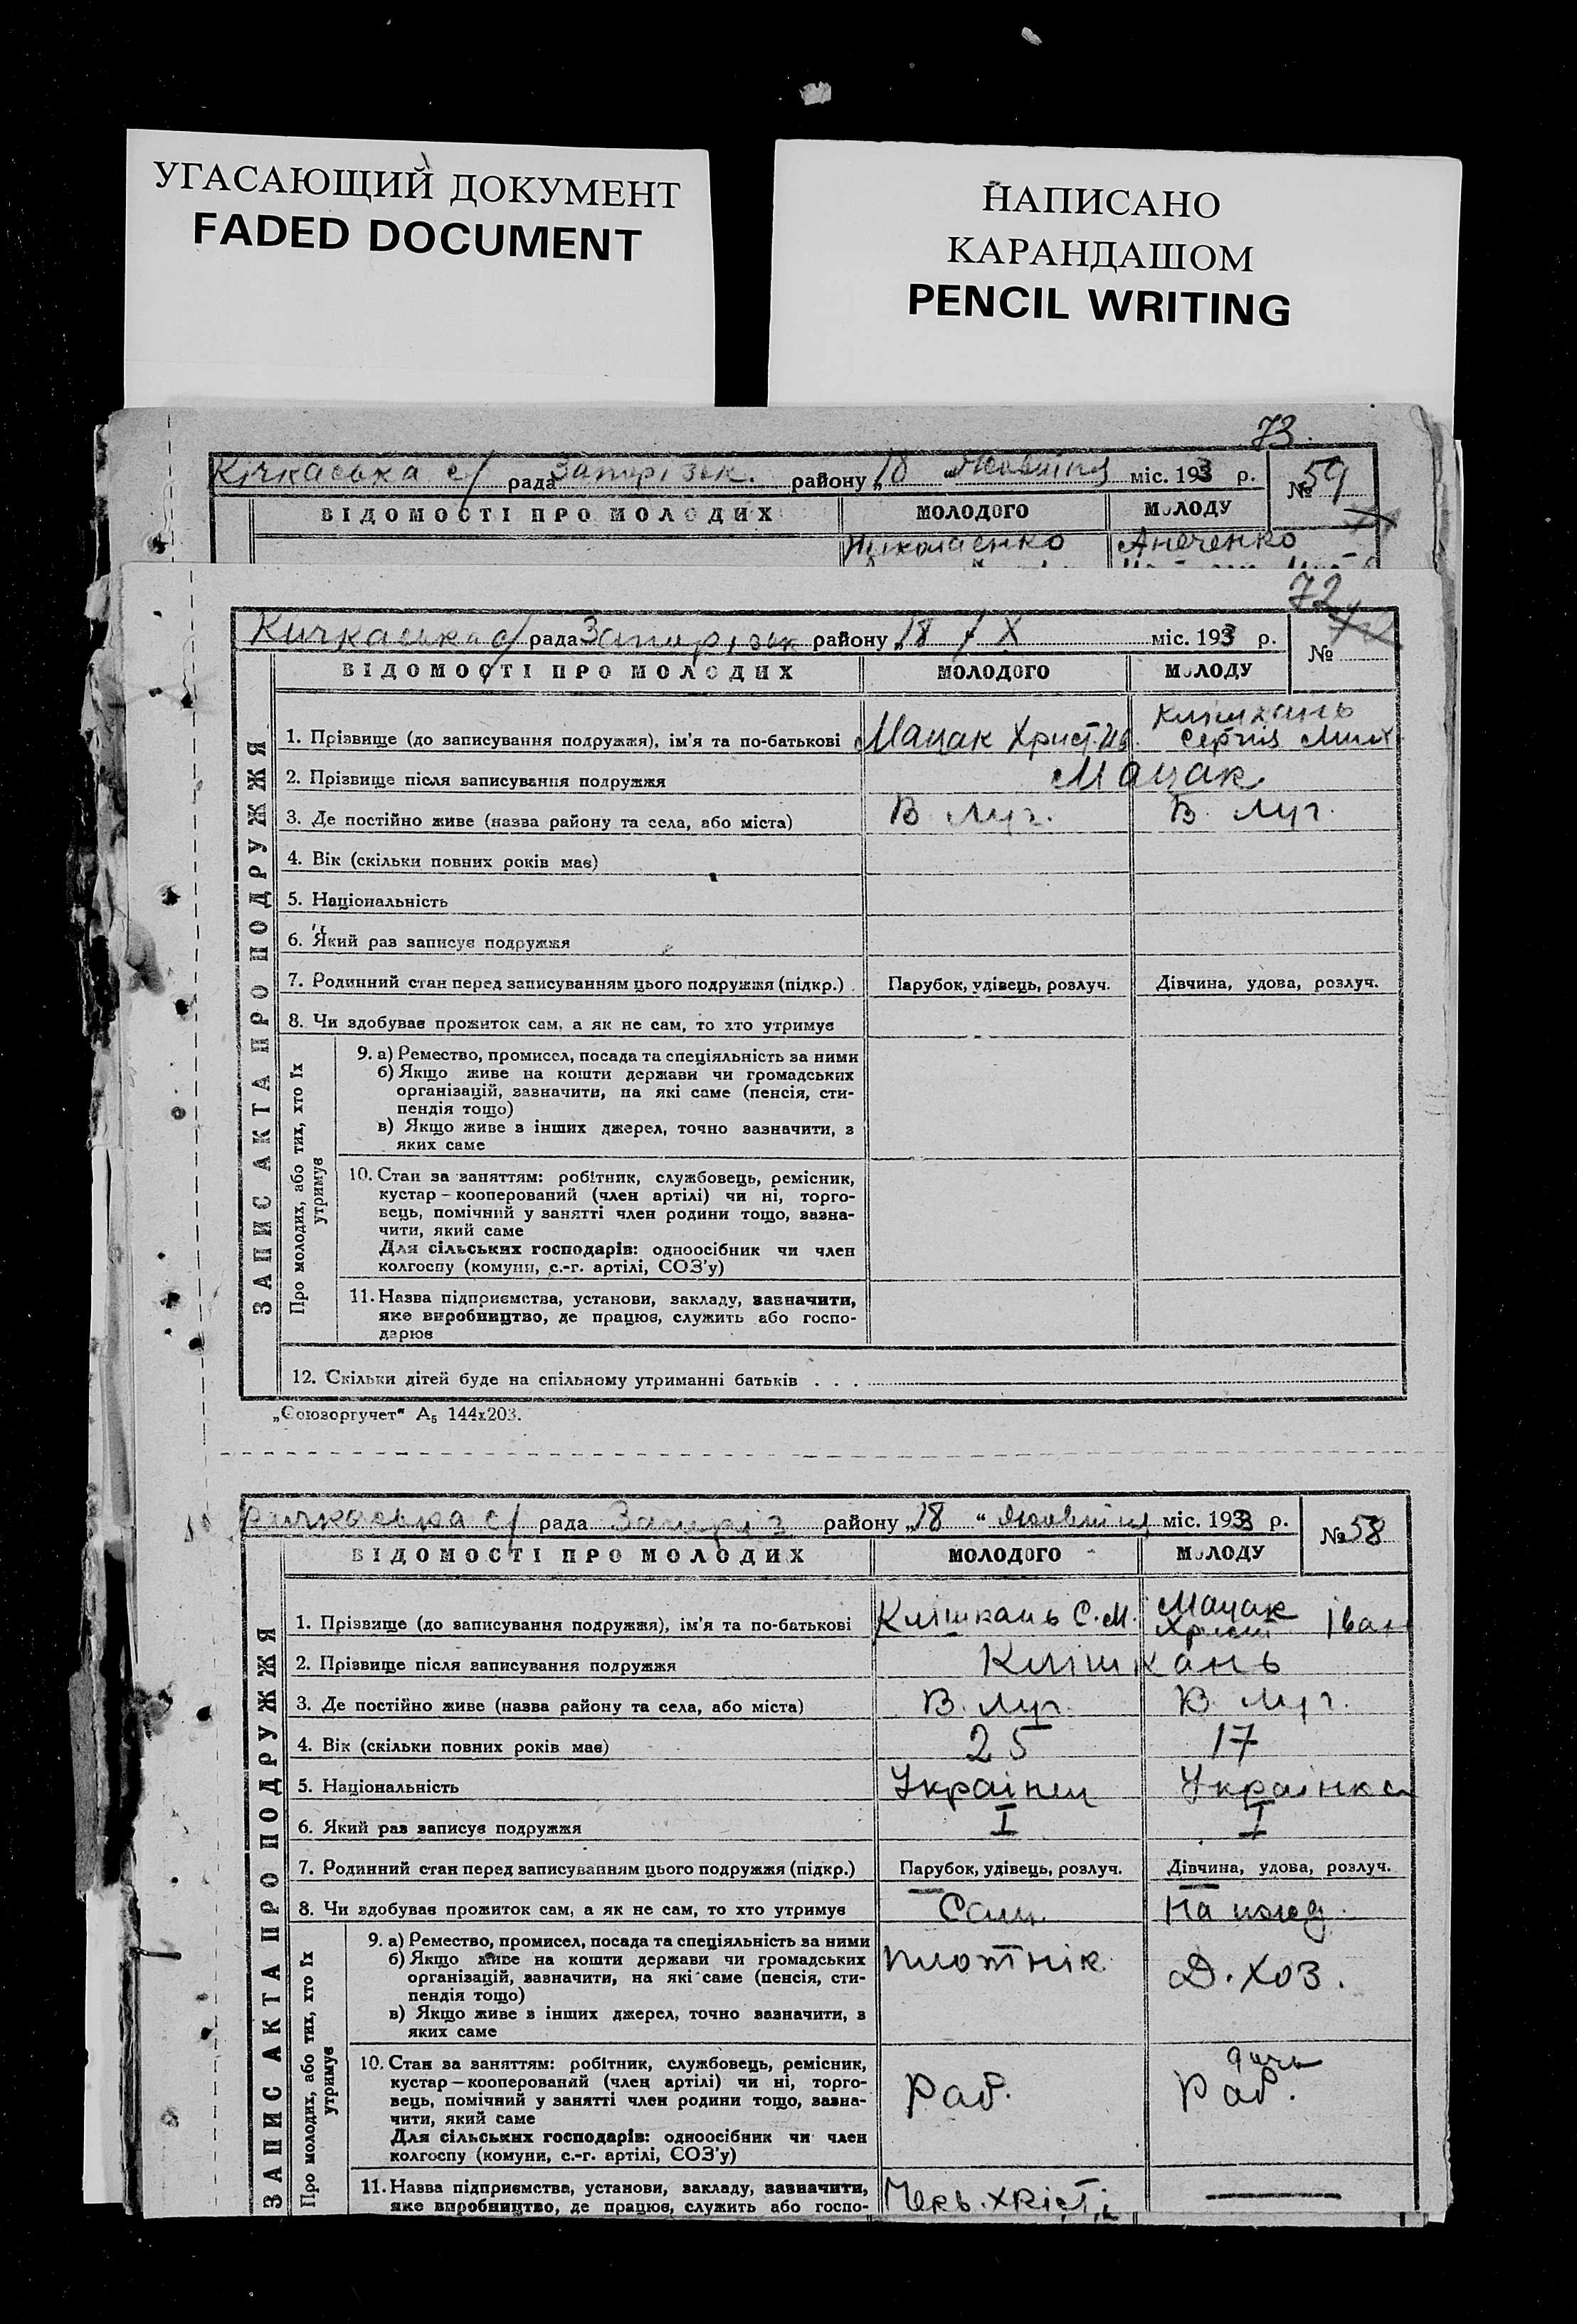 УГАСАЮЩИЙ ДОКУМЕНТ
FADED DOCUMENT
НАПИСАНО
КАРАНДАШОМ
PENCIL WRITING
73.
Кічкаська с/ рада Запорізьк. району „18 “ Жовтня міс. 1933 р.
№ 59
ВІДОМОСТІ ПРО МОЛОДИХ
МОЛОДОГО
МОЛОДУ
Ніколаенко
72
Кичкаська с/ рада Запорізьк району „18 / X міс. 1933 р.
№
ВІДОМОСТІ ПРО МОЛОДИХ
МОЛОДОГО
МОЛОДУ
ЗАПИС АКТА ПРО ПОДРУЖЖЯ
1. Прізвище (до записування подружжя), ім’я та по-батькові
Мацак Христ Ів.
Клішкань
Сергія Мих
2. Прізвище після записування подружжя
Мацак
3. Де постійно живе (назва району та села, або міста)
В Луг.
В. Луг.
4. Вік (скільки повних років має)
5. Національність
6. Який раз записує подружжя
7. Родинний стан перед записуванням цього подружжя (підкр.)
Парубок, удівець, розлуч.
Дівчина, удова, розлуч.
8. Чи здобуває прожиток сам, а як не сам, то хто утримує
Про молодих, або тих, хто їх
утримує
9. а) Ремество, промисел, посада та спеціяльність за ними
б) Якщо живе на кошти держави чи громадських
організацій, зазначити, на які саме (пенсія, сти-
пендія тощо)
в) Якщо живе з інших джерел, точно зазначити, з
яких саме
10. Стан за заняттям: робітник, службовець, ремісник,
кустар – кооперований (член артілі) чи ні, торго-
вець, помічний у занятті член родини тощо, зазна-
чити, який саме
Для сільських господарів: одноосібник чи член
колгоспу (комуни, с.-г. артілі, СОЗ’у)
11. Назва підприємства, установи, закладу, зазначити,
яке виробництво, де працює, служить або госпо-
дарює
12. Скільки дітей буде на спільному утриманні батьків . . .
„Союзоргучет“ А5 144х203.
Кичкаська с/ рада Запоріз району „18 “ Жовтня міс. 1933 р.
№ 58
ВІДОМОСТІ ПРО МОЛОДИХ
МОЛОДОГО
МОЛОДУ
ЗАПИС АКТА ПРО ПОДРУЖЖЯ
1. Прізвище (до записування подружжя), ім’я та по-батькові
Клішкань С.М.
Мацак
Христ Іван
2. Прізвище після записування подружжя
Клішкань
3. Де постійно живе (назва району та села, або міста)
В. Луг.
В. Луг.
4. Вік (скільки повних років має)
25
17
5. Національність
Українец
Українка
6. Який раз записує подружжя
I
I
7. Родинний стан перед записуванням цього подружжя (підкр.)
Парубок, удівець, розлуч.
Дівчина, удова, розлуч.
8. Чи здобуває прожиток сам, а як не сам, то хто утримує
Сам.
На
Про молодих, або тих, хто їх
утримує
9. а) Ремество, промисел, посада та спеціяльність за ними
б) Якщо живе на кошти держави чи громадських
організацій, зазначити, на які саме (пенсія, сти-
пендія тощо)
в) Якщо живе з інших джерел, точно зазначити, з
яких саме
плотнік
Д. хоз.
10. Стан за заняттям: робітник, службовець, ремісник,
кустар — кооперований (член артілі) чи ні, торго-
вець, помічний у занятті член родини тощо, зазна-
чити, який саме
Для сільських господарів: одноосібник чи член
колгоспу (комуни, с.-г. артілі, СОЗ’у)
Раб.
дочь
Раб.
11. Назва підприємства, установи, закладу, зазначити,
яке виробництво, де працює, служить або госпо-